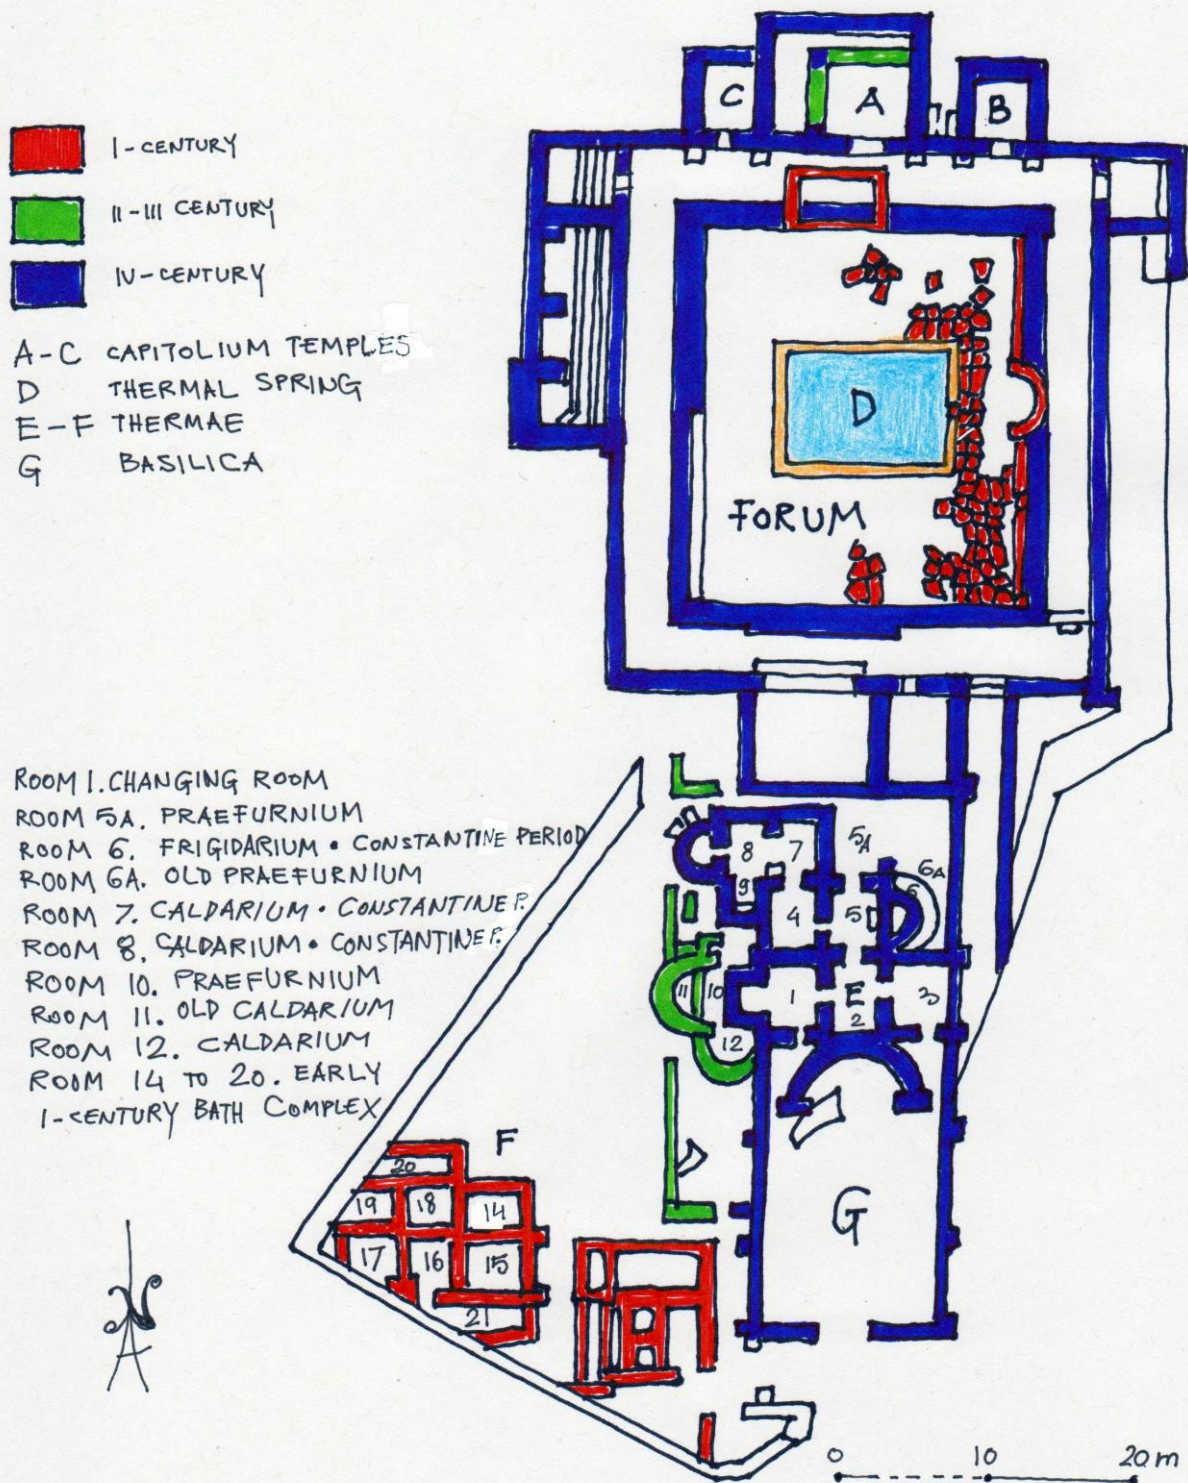 I-CENTURY
II-III CENTURY
IV-CENTURY
A-C CAPITOLIUM TEMPLES
D THERMAL SPRING
E-F THERMAE
G BASILICA
C
A
B
D
FORUM
ROOM 1. CHANGING ROOM
ROOM 5A. PRAEFURNIUM
ROOM 6. FRIGIDARIUM • CONSTANTINE PERIOD
ROOM 6A. OLD PRAEFURNIUM
ROOM 7. CALDARIUM • CONSTANTINE P.
ROOM 8. CALDARIUM • CONSTANTINE P.
ROOM 10. PRAEFURNIUM
ROOM 11. OLD CALDARIUM
ROOM 12. CALDARIUM
ROOM 14 TO 20. EARLY
I-CENTURY BATH COMPLEX
8
7
5A
6A
6
9
4
5
11
10
1
E
3
2
12
F
20
19
18
14
17
16
15
21
G
N
0 10 20 m